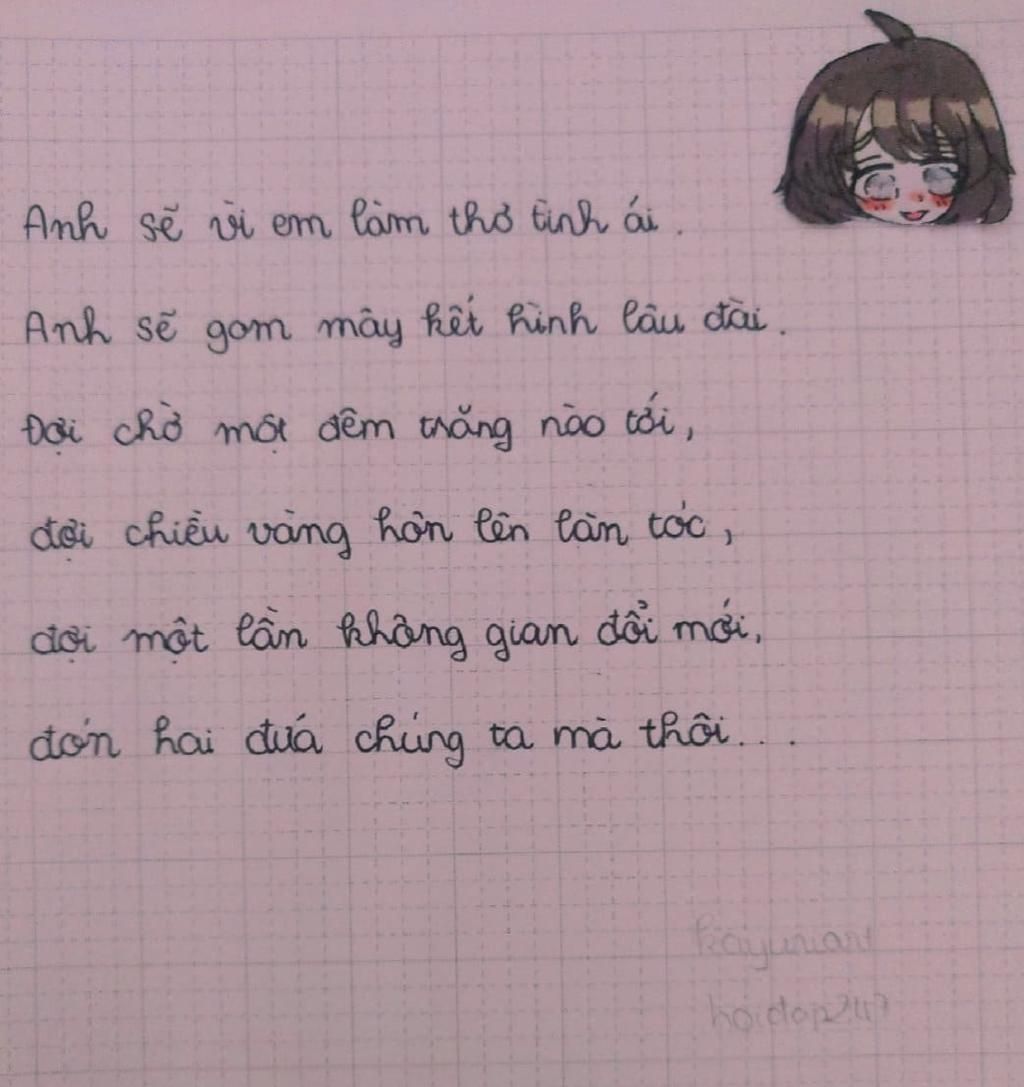 Anh sẽ vì em làm thơ tình ái.
Anh sẽ gom mây kết hình lâu đài.
Đợi chờ một đêm trăng nào tới,
đợi chiều vàng hôn lên làn tóc,
đợi một lần không gian đổi mới,
đón hai đứa chúng ta mà thôi...
hoidap247